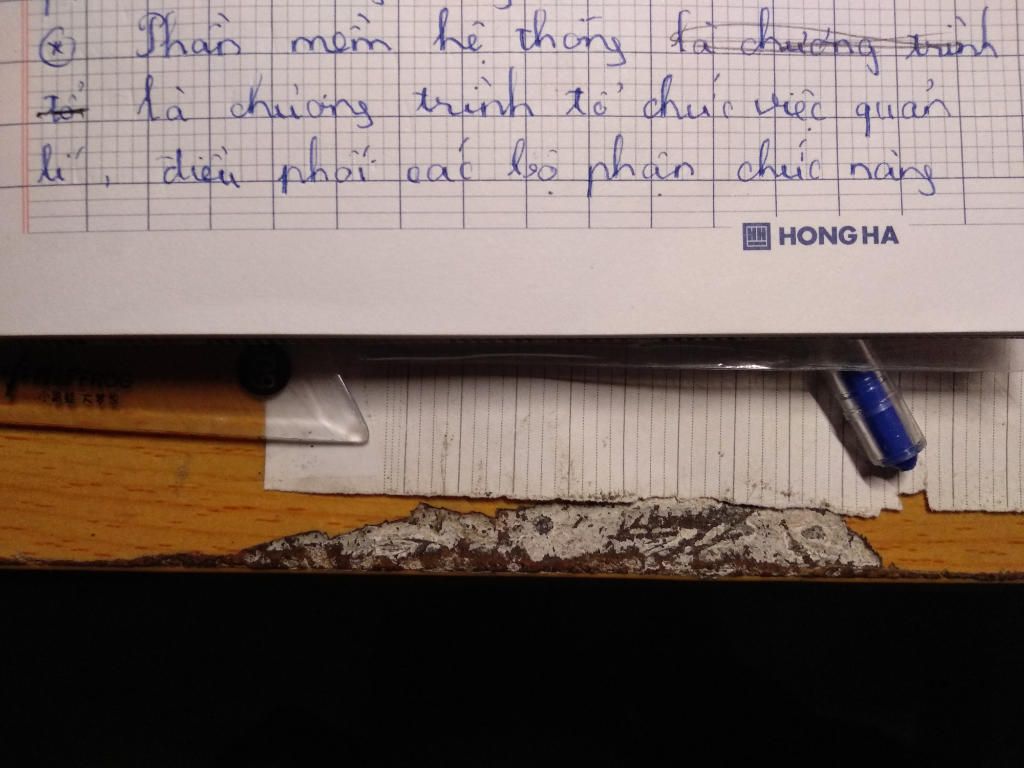 (*) Phần mềm hệ thống là chương trình
tổ là chương trình tổ chức việc quản
lí, điều phối các bộ phận chức năng
HONG HA
FROG
60